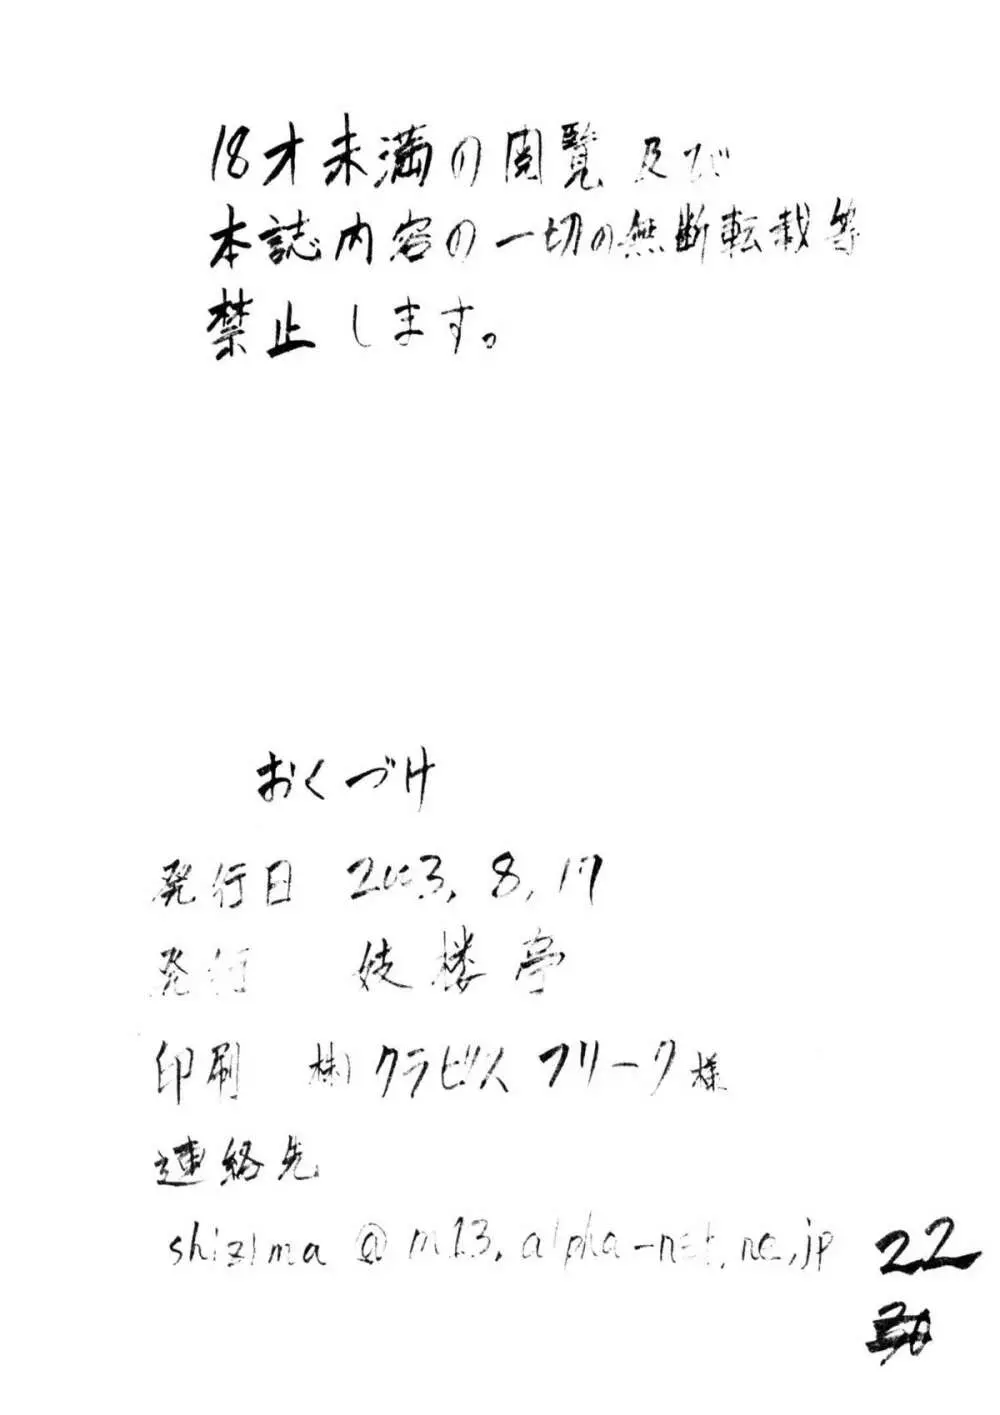 18才未満の閲覧及び
本誌内容の一切の無断転載等
禁止します。
おくづけ
発行日 2003.8.17
発行 妓楼亭
印刷 株)クラビリス フリーク様
連絡先
shizima@m13.alpha-net.ne.jp
22
30